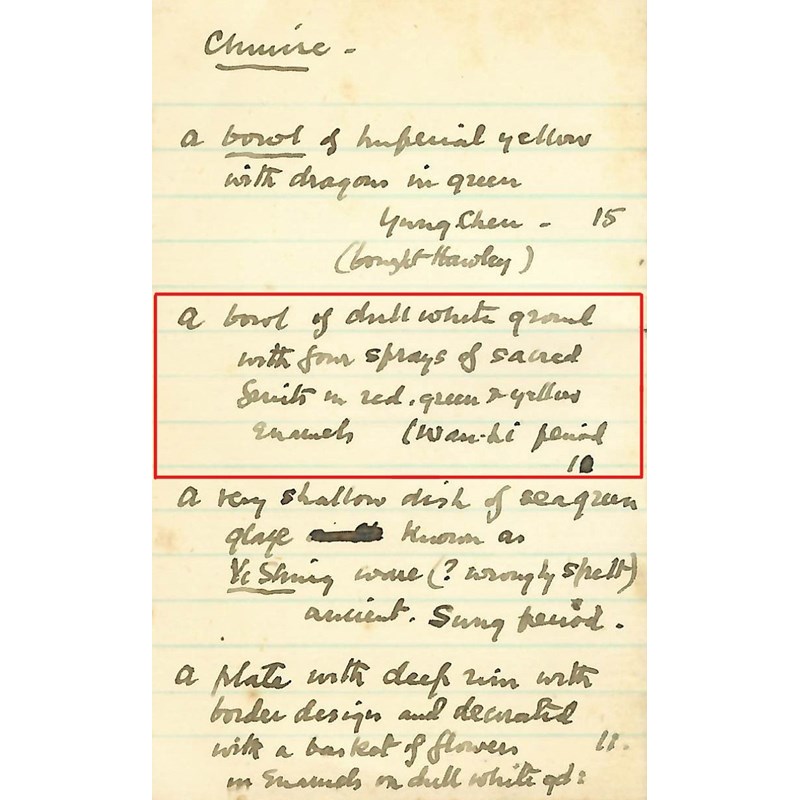 Chinese -
a bowl of Imperial yellow
with dragons in green
Yung Chen - 15
(bought Hawley)
a bowl of dull white ground
with four sprays of sacred
fruits in red, green & yellow
Enamels (Wan-Li period
10
a very shallow dish of seagreen
glaze known as
Yc Shing ware (? wrongly spelt)
ancient. Sung period.
a plate with deep rim with
border design and decorated
with a basket of flowers 11.
in Enamels on dull white gd: